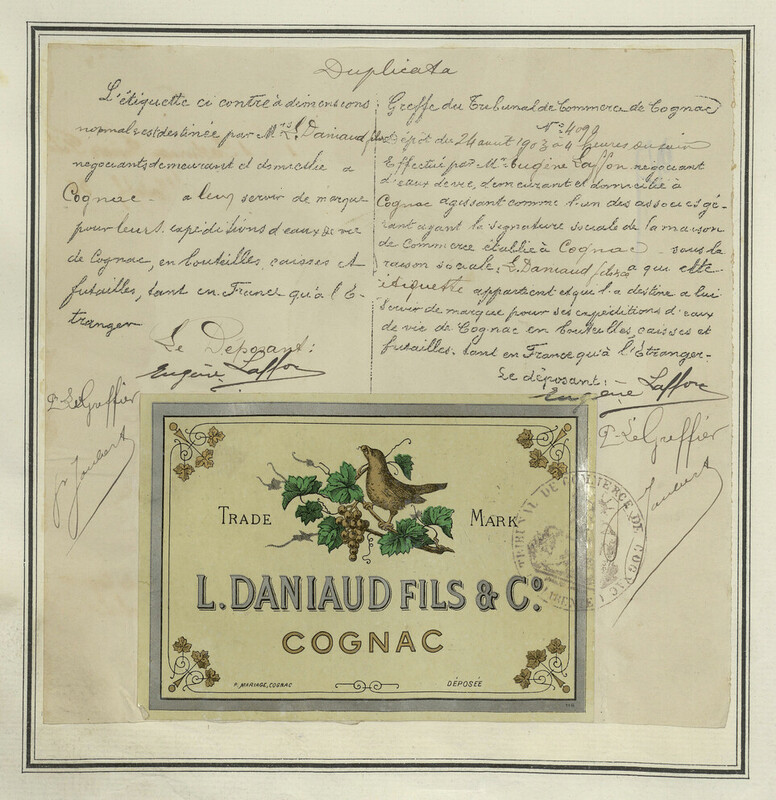 Duplicata
L'étiquette ci contre à dimensions
normales est destinée par Mrs L. Daniaud fils
négociants demeurant et domicilié à
Cognac - a leur servir de marque
pour leurs expéditions d'eaux de vie
de Cognac, en bouteilles, caisses et
futailles, tant en France qu'à l'É-
tranger
Le Déposant:
Eugène Laffon
P. Le Greffier
Jaubert
Greffe du Tribunal de Commerce de Cognac
N° 4099
Dépôt du 24 août 1903 à 4 heures du soir
Effectué par Mr Eugène Laffon négociant
d'eaux de vie, demeurant et domicilié à
Cognac agissant comme l'un des associés gé-
rant ayant la signature sociale de la maison
de Commerce établie à Cognac sous la
raison sociale, L. Daniaud a que cette
étiquette appartient et qu'il a destine a lui
servir de marque pour ses expéditions d'eaux
de vie de Cognac en bouteilles, caisses et
futailles. tant en France qu'à l'Étranger-
Le déposant:-
Eugène Laffon
P. Le Greffier
Jaubert
TRADE MARK
L. DANIAUD FILS & Co.
COGNAC
P. MARIAGE, COGNAC
DÉPOSÉE
TRIBUNAL DE COMMERCE DE COGNAC